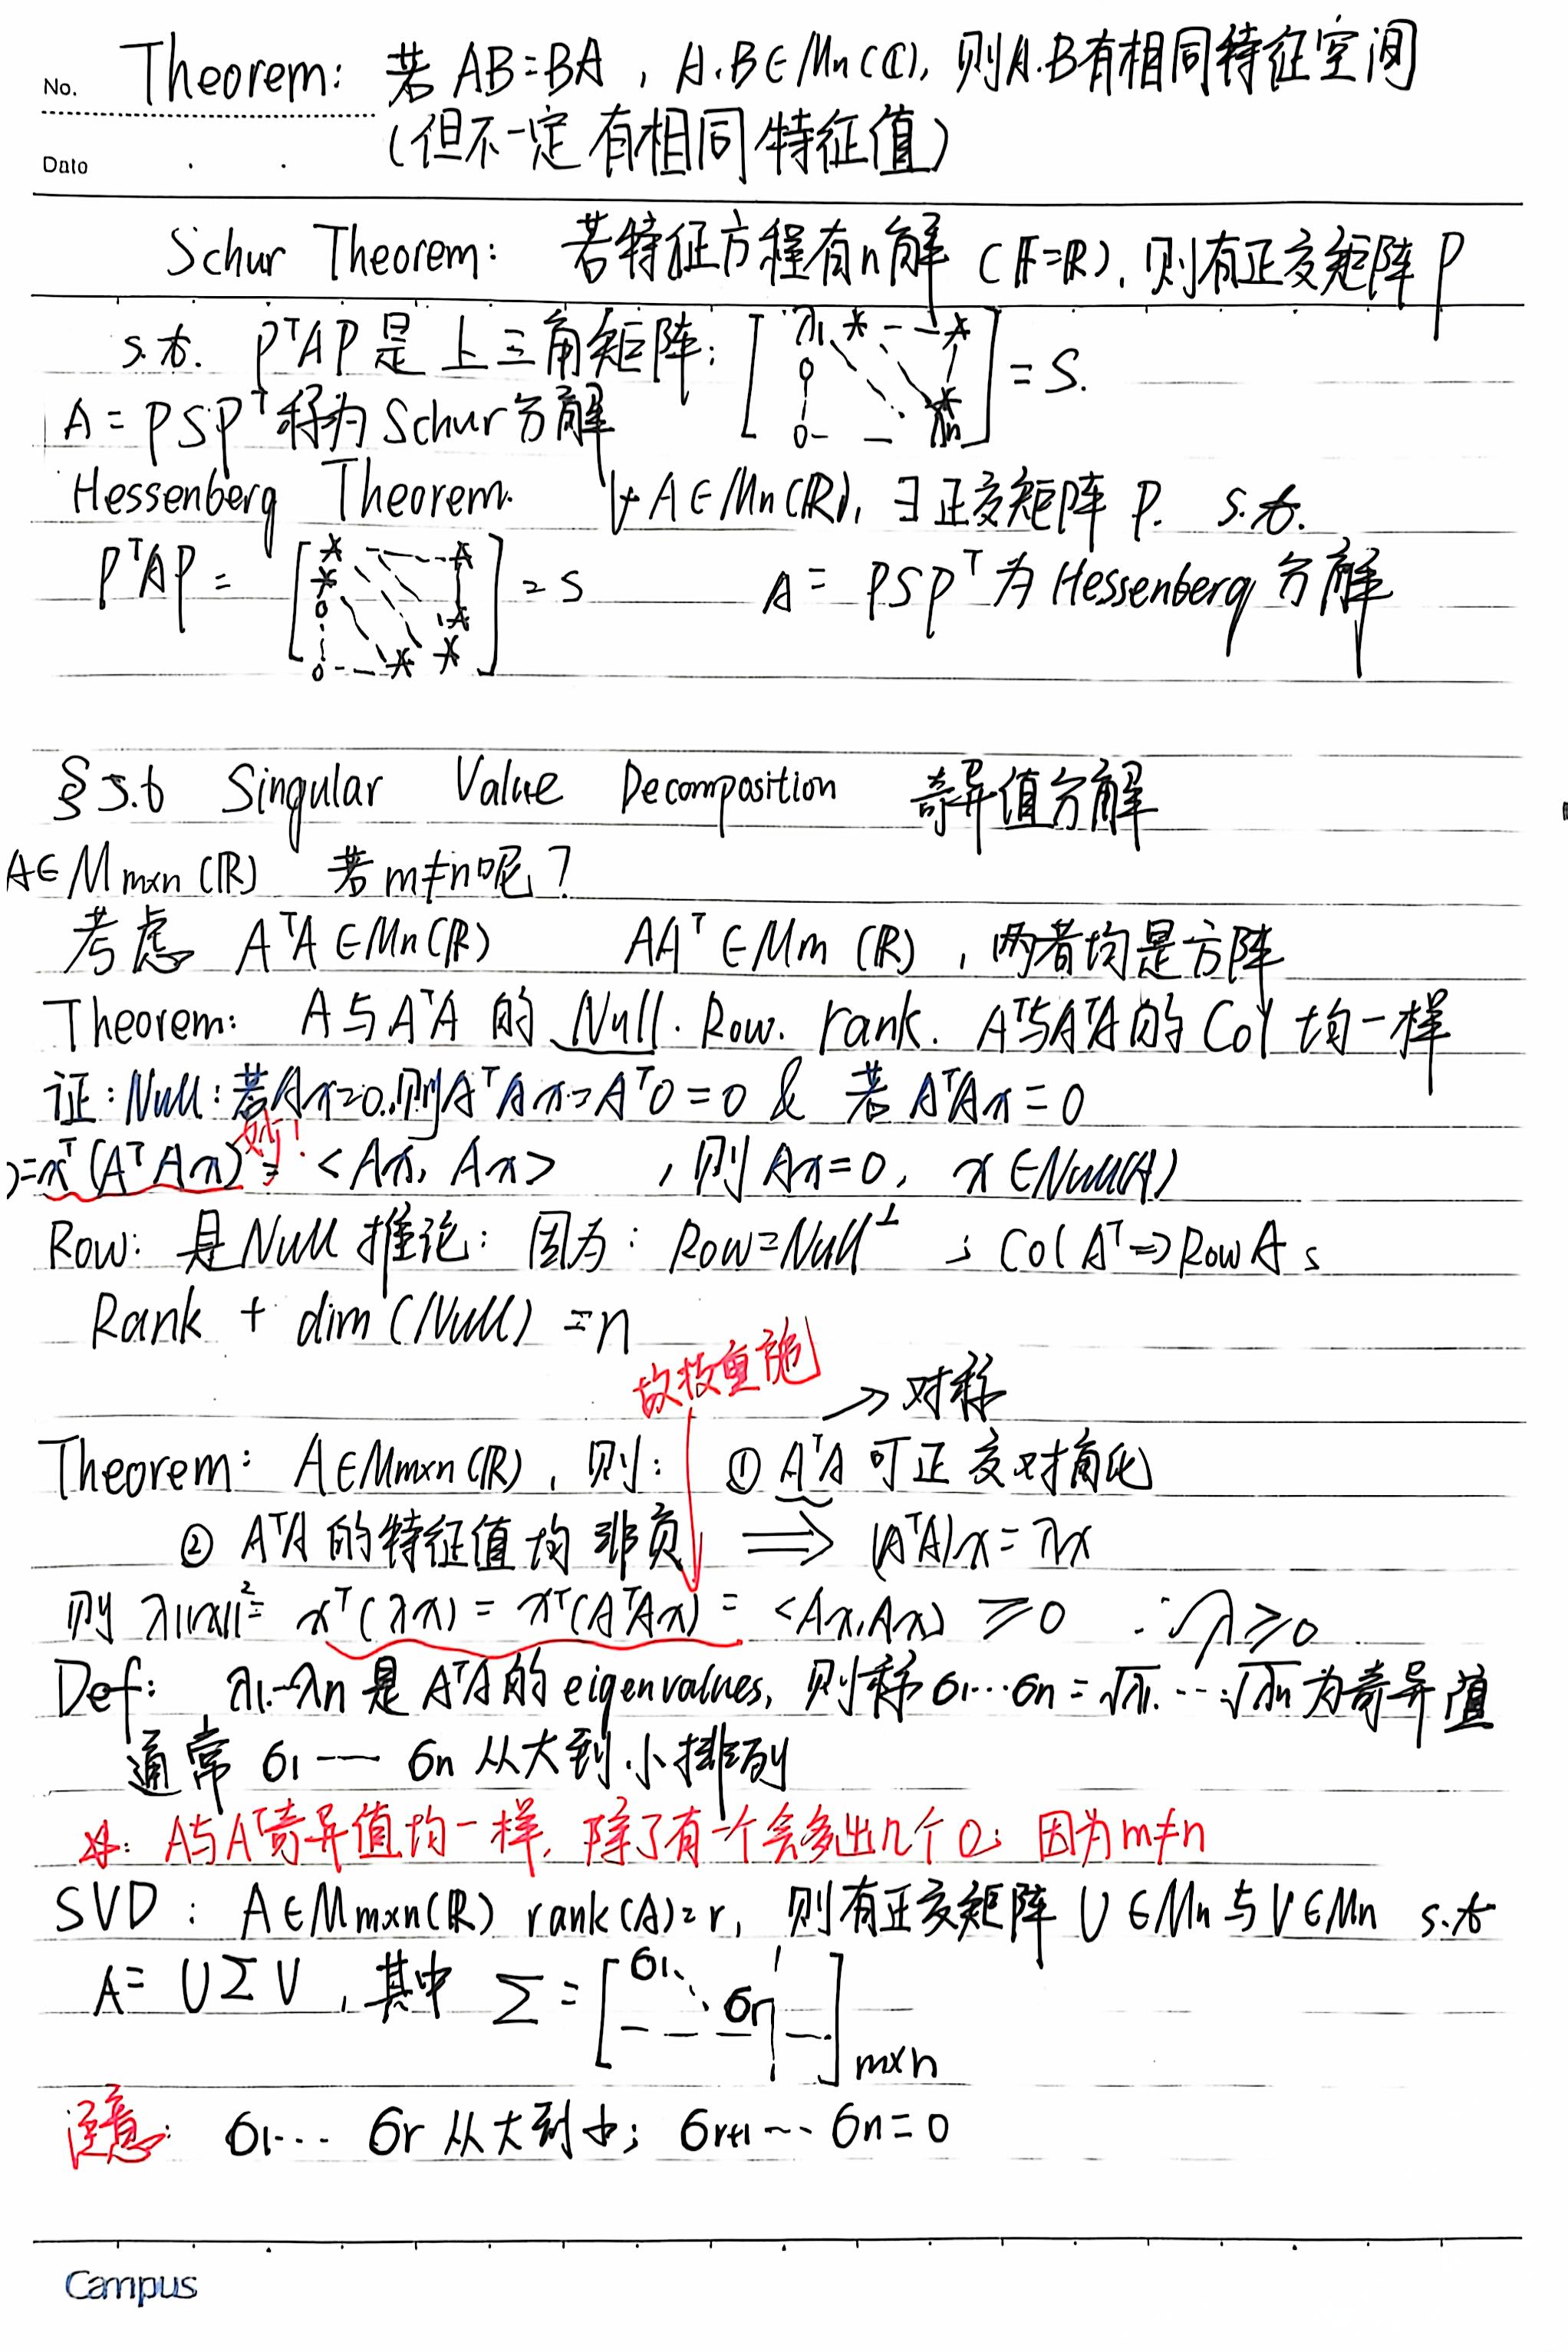 No. Theorem: 若 AB=BA , A.B∈Mn(ℂ), 则A.B有相同特征空间
Date (但不一定有相同特征值)
Schur Theorem: 若特征方程有n解 (F=ℝ), 则有正交矩阵 P
s.t. PᵀAP是上三角矩阵: [λ1 * - - * 0 0 - - λn] = S.
A = PSPᵀ称为Schur分解
Hessenberg Theorem. ∀A∈Mn(ℝ), ∃正交矩阵 P. s.t.
PᵀAP = [* - - * * 0 * 0 - - * *] = S A = PSPᵀ 为 Hessenberg 分解
§5.6 Singular Value Decomposition 奇异值分解
A∈Mm×n(ℝ) 若m≠n呢?
考虑 AᵀA∈Mn(ℝ) AAᵀ∈Mm(ℝ) , 两者均是方阵
Theorem: A与AᵀA 的 Null. Row. rank. Aᵀ与AᵀA的 Col 均一样
证: Null: 若Ax=0.,则AᵀAx=Aᵀ0=0 & 若 AᵀAx=0
妙!
)=xᵀ(AᵀAx)= <Ax, Ax> , 则 Ax=0, x∈Null(A)
Row: 是Null 推论: 因为: Row=Null⊥ ; Col Aᵀ⇒Row A ;
Rank + dim(Null) =n
故技重施
→对称
Theorem: A∈Mm×n(ℝ), 则: ① AᵀA 可正交对角化
② AᵀA 的特征值均非负 ⟹ (AᵀA)x=λx
则 λ||x||²= xᵀ(λx) = xᵀ(AᵀAx) = <Ax,Ax> ≥0 ∴λ≥0
Def: λ1..λn 是 AᵀA的 eigenvalues, 则称 σ1...σn = √λ1. ... √λn 为奇异值
通常 σ1 --- σn 从大到小排列
※: A与Aᵀ奇异值均一样, 除了有一个会多出几个0; 因为m≠n
SVD : A∈Mm×n(ℝ) rank(A)=r, 则有正交矩阵 U∈Mn与V∈Mn s.t
A= UΣV , 其中 Σ=[σ1 ⋱ σr]m×n
注意: σ1... σr 从大到小; σr+1 ... σn=0
Campus